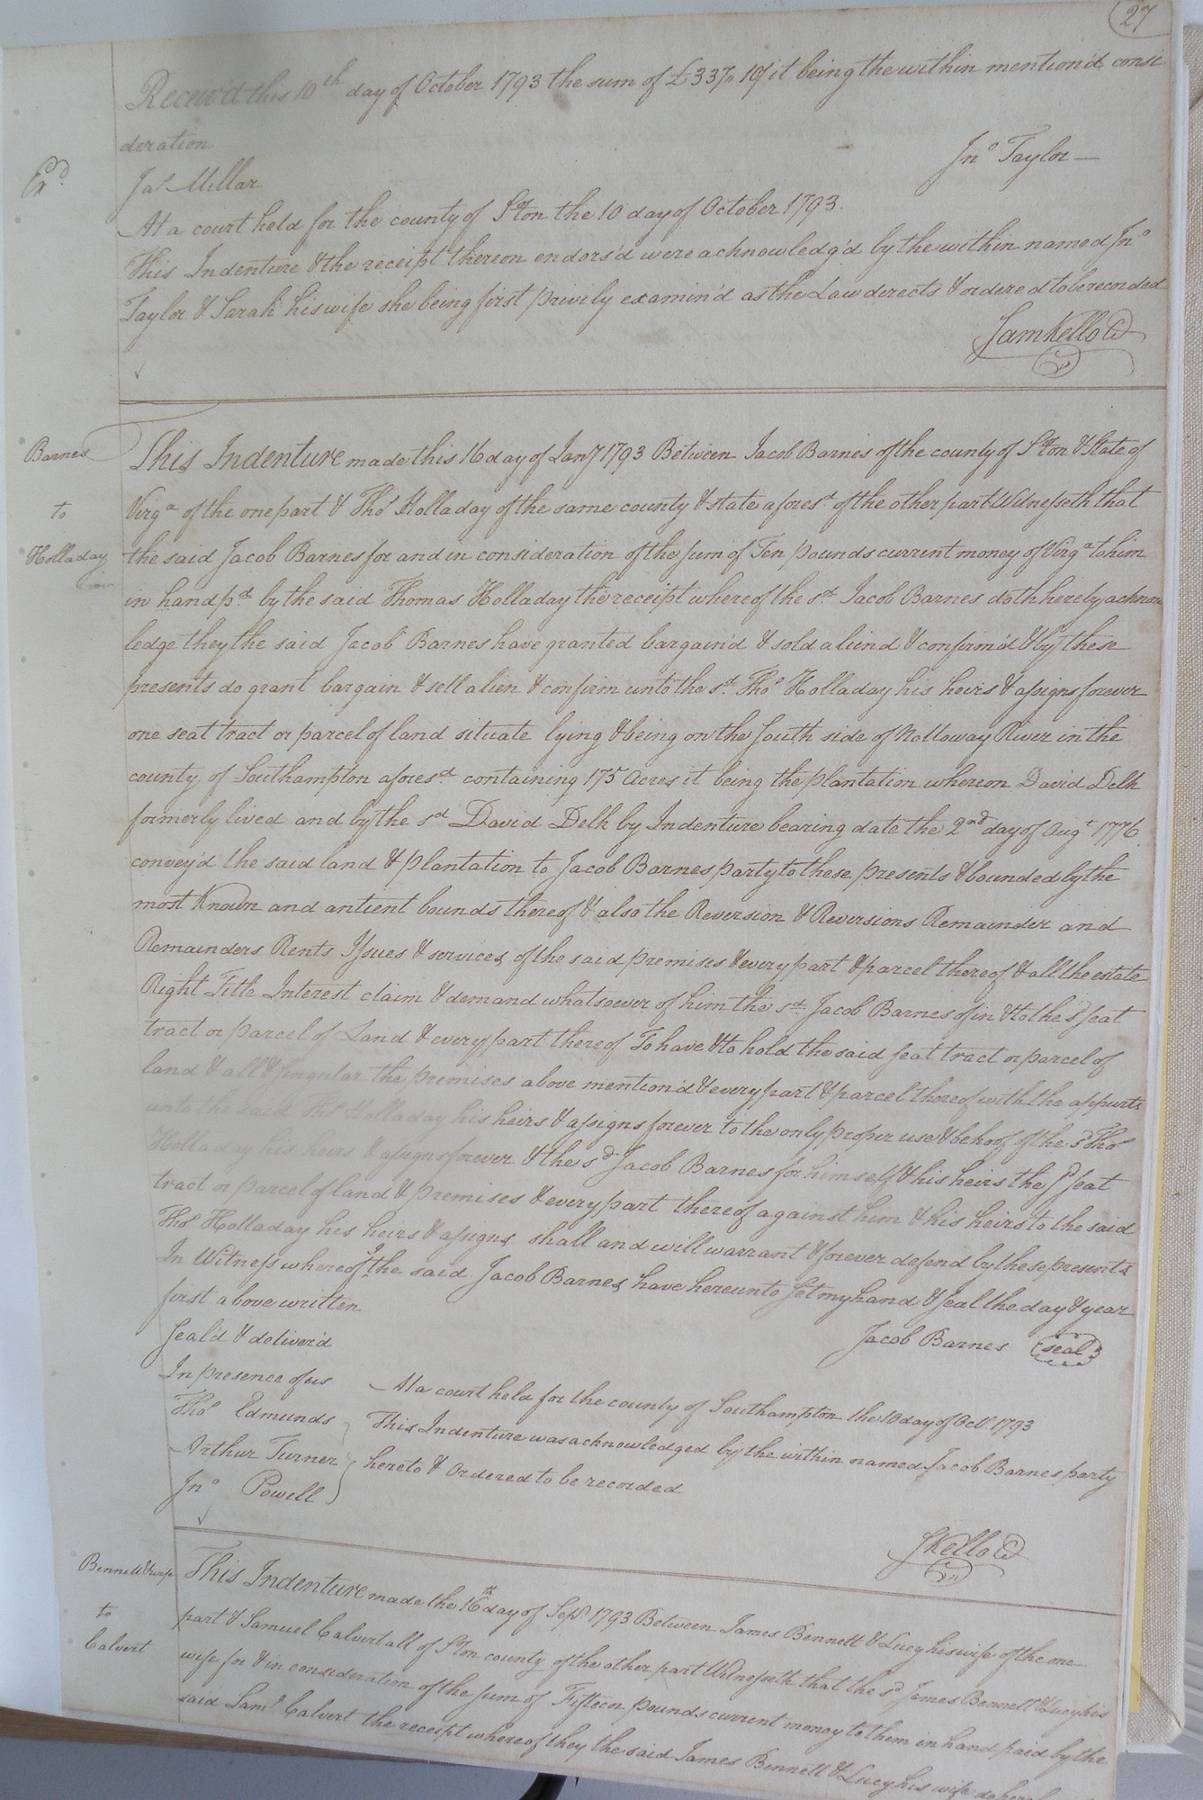 27
Receiv'd this 10th day of October 1793 the sum of £337,,10/ it being the within mention'd consi
deration
Jno Taylor
Exd
Jas Millar
At a court held for the county of S'ton the 10 day of October 1793.
This Indenture & the receipt thereon endors'd were acknowledg'd by the within named Jno
Taylor & Sarah his wife she being first privily examin'd as the Law directs & ordered to be recorded
Sam Kello Ck
Barnes
to
Holladay
This Indenture made this 16 day of Jany 1793 Between Jacob Barnes of the county of S'ton & State of
Virga of the one part & Thos Holladay of the same county & state aforesd of the other part Witnesseth that
the said Jacob Barnes for and in consideration of the sum of Ten pounds current money of Virga to him
in hand pd by the said Thomas Holladay the receipt whereof the sd Jacob Barnes doth hereby acknow
ledge they the said Jacob Barnes have granted bargain'd & sold aliend & confirm'd & by these
presents do grant bargain & sell alien & confirm unto the sd Thos Holladay his heirs & assigns forever
one seat tract or parcel of land situate lying & being on the South side of Nolloway River in the
county of Southampton aforesd containing 175 Acres it being the plantation whereon David Delk
formerly lived and by the sd David Delk by Indenture bearing date the 2nd day of Augt 1776
convey'd the said land & plantation to Jacob Barnes party to these presents & bounded by the
most known and antient bounds thereof & also the Reversion & Reversions Remainder and
Remainders Rents Issues & services of the said premises & every part & parcel thereof & all the estate
Right Title Interest claim & demand whatsoever of him the sd Jacob Barnes of in & to the sd seat
tract or parcel of Land & every part thereof To have & to hold the said seat tract or parcel of
land & all & singular the premises above mention'd & every part & parcel thereof with the appurts
unto the said Thos Holladay his heirs & assigns forever to the only proper use & behoof of the sd Thos
Holladay his heirs & assigns forever & the sd Jacob Barnes for himself & his heirs the sd seat
tract or parcel of land & premises & every part thereof against him & his heirs to the said
Thos Holladay his heirs & assigns shall and will warrant & forever defend by these presents
In Witness whereof I the said Jacob Barnes have hereunto set my hand & seal the day & year
first above written
Seal'd & deliver'd
Jacob Barnes seal
In presence of us
Thos Edmunds
Arthur Turner
Jno Powell
At a court held for the county of Southampton the 10 day of Octr 1793
This Indenture was acknowledged by the within named Jacob Barnes party
hereto & Ordered to be recorded
S Kello Ck
Bennett & wife
to
Calvert
This Indenture made the 16th day of Sepr 1793 Between James Bennett & Lucy his wife of the one
part & Samuel Calvert all of S'ton county of the other part Witnesseth that the sd James Bennett & Lucy his
wife for & in consideration of the sum of Fifteen pounds current money to them in hand paid by the
said Saml Calvert the receipt whereof they the said James Bennett & Lucy his wife do